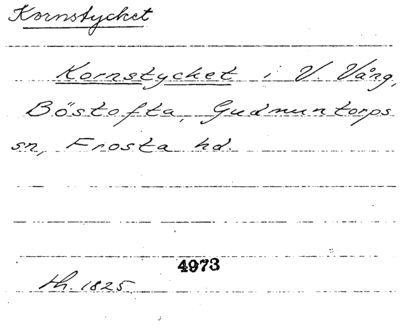 Kornstycket
Kornstycket i V. Vång,
Böstofta, Gudmuntorps
sn, Frosta hd.
4973
th. 1825.